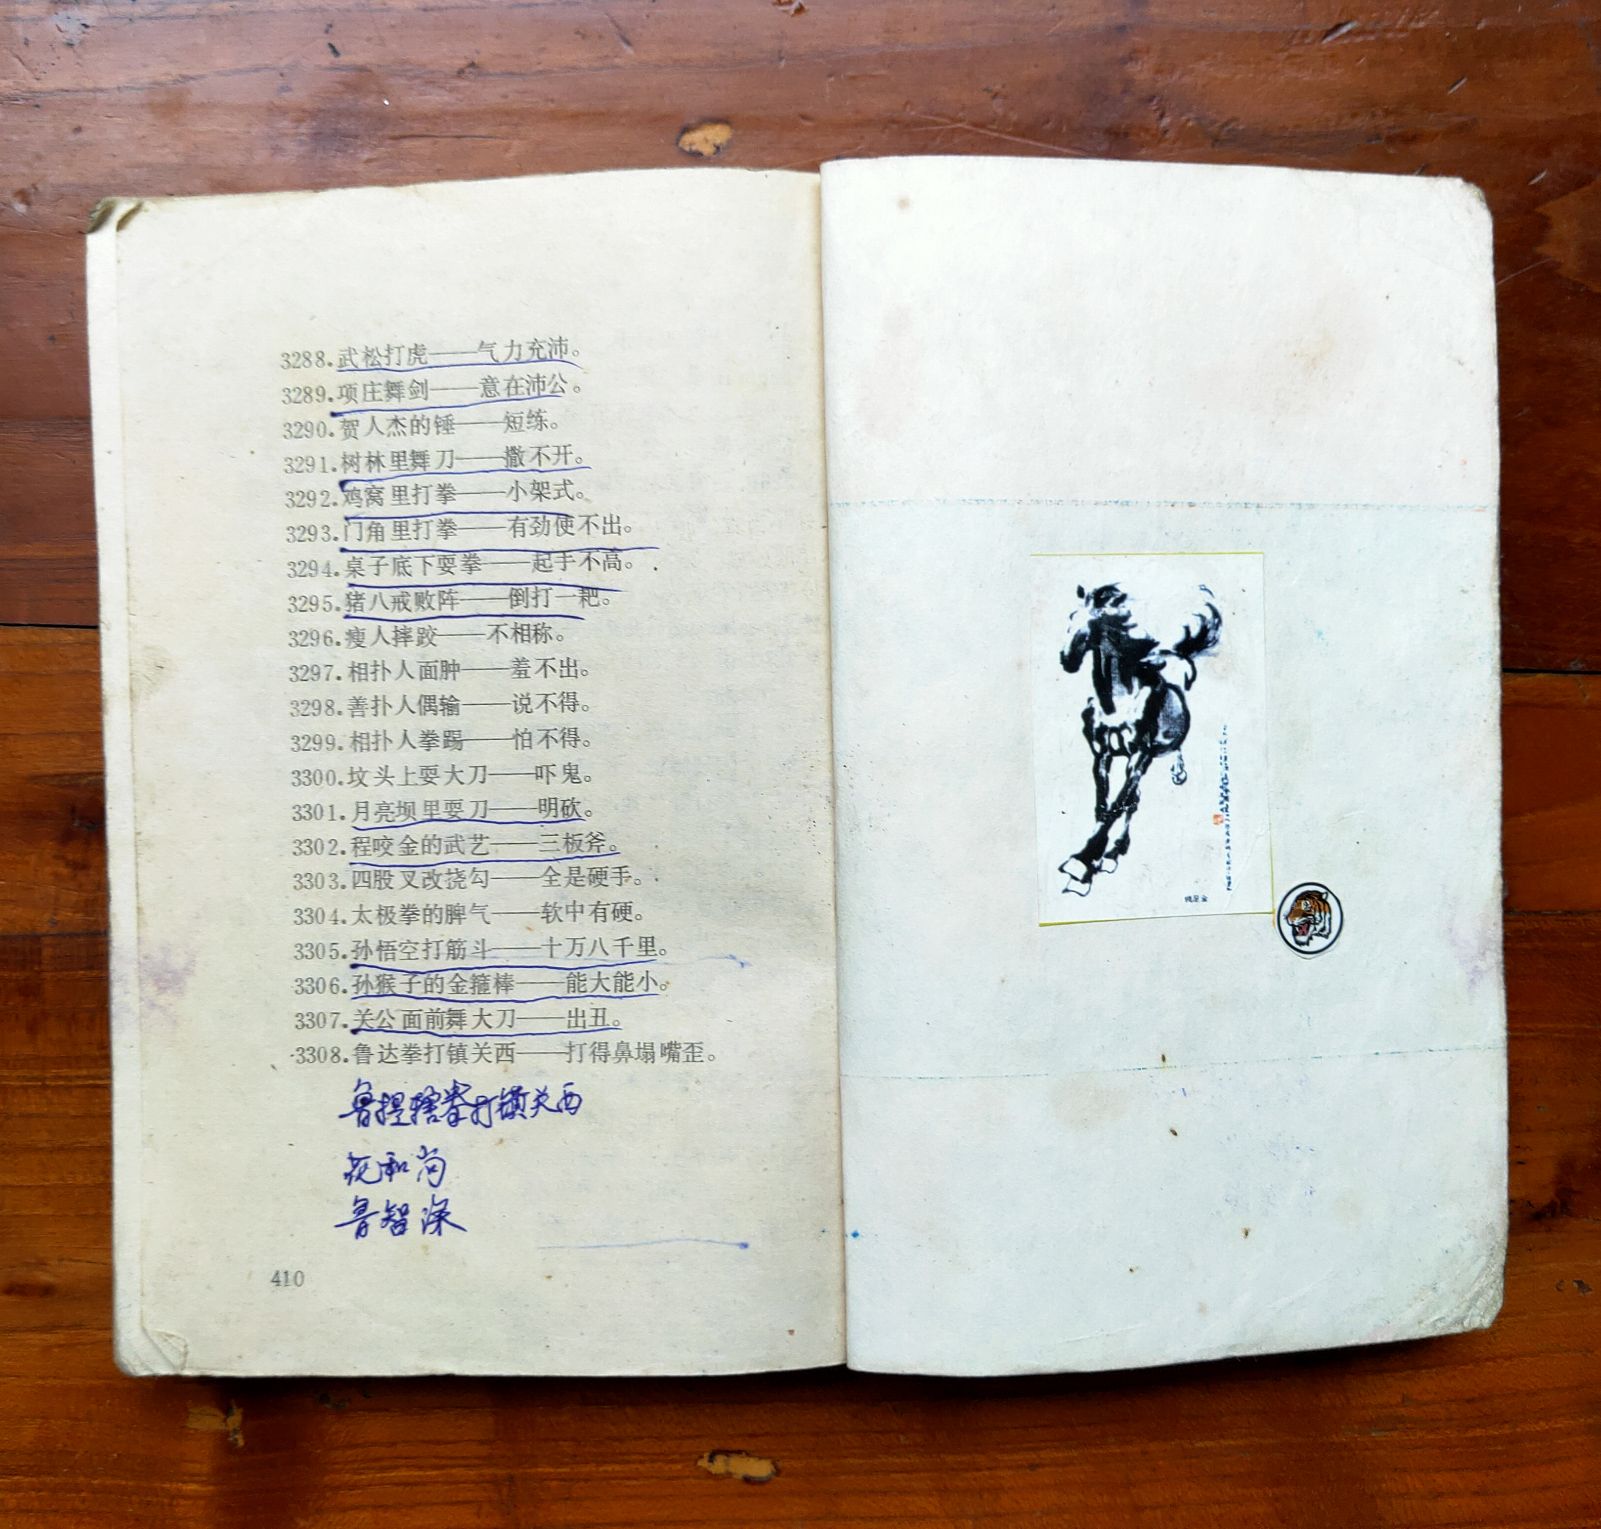 3288.武松打虎——气力充沛。
3289.项庄舞剑——意在沛公。
3290.贺人杰的锤——短练。
3291.树林里舞刀——撒不开。
3292.鸡窝里打拳——小架式。
3293.门角里打拳——有劲使不出。
3294.桌子底下耍拳——起手不高。
3295.猪八戒败阵——倒打一耙。
3296.瘦人摔跤——不相称。
3297.相扑人面肿——羞不出。
3298.善扑人偶输——说不得。
3299.相扑人拳踢——怕不得。
3300.坟头上耍大刀——吓鬼。
3301.月亮坝里耍刀——明砍。
3302.程咬金的武艺——三板斧。
3303.四股叉改挠勾——全是硬手。
3304.太极拳的脾气——软中有硬。
3305.孙悟空打筋斗——十万八千里。
3306.孙猴子的金箍棒——能大能小。
3307.关公面前舞大刀——出丑。
3308.鲁达拳打镇关西——打得鼻塌嘴歪。
鲁提辖拳打镇关西
花和尚
鲁智深
410